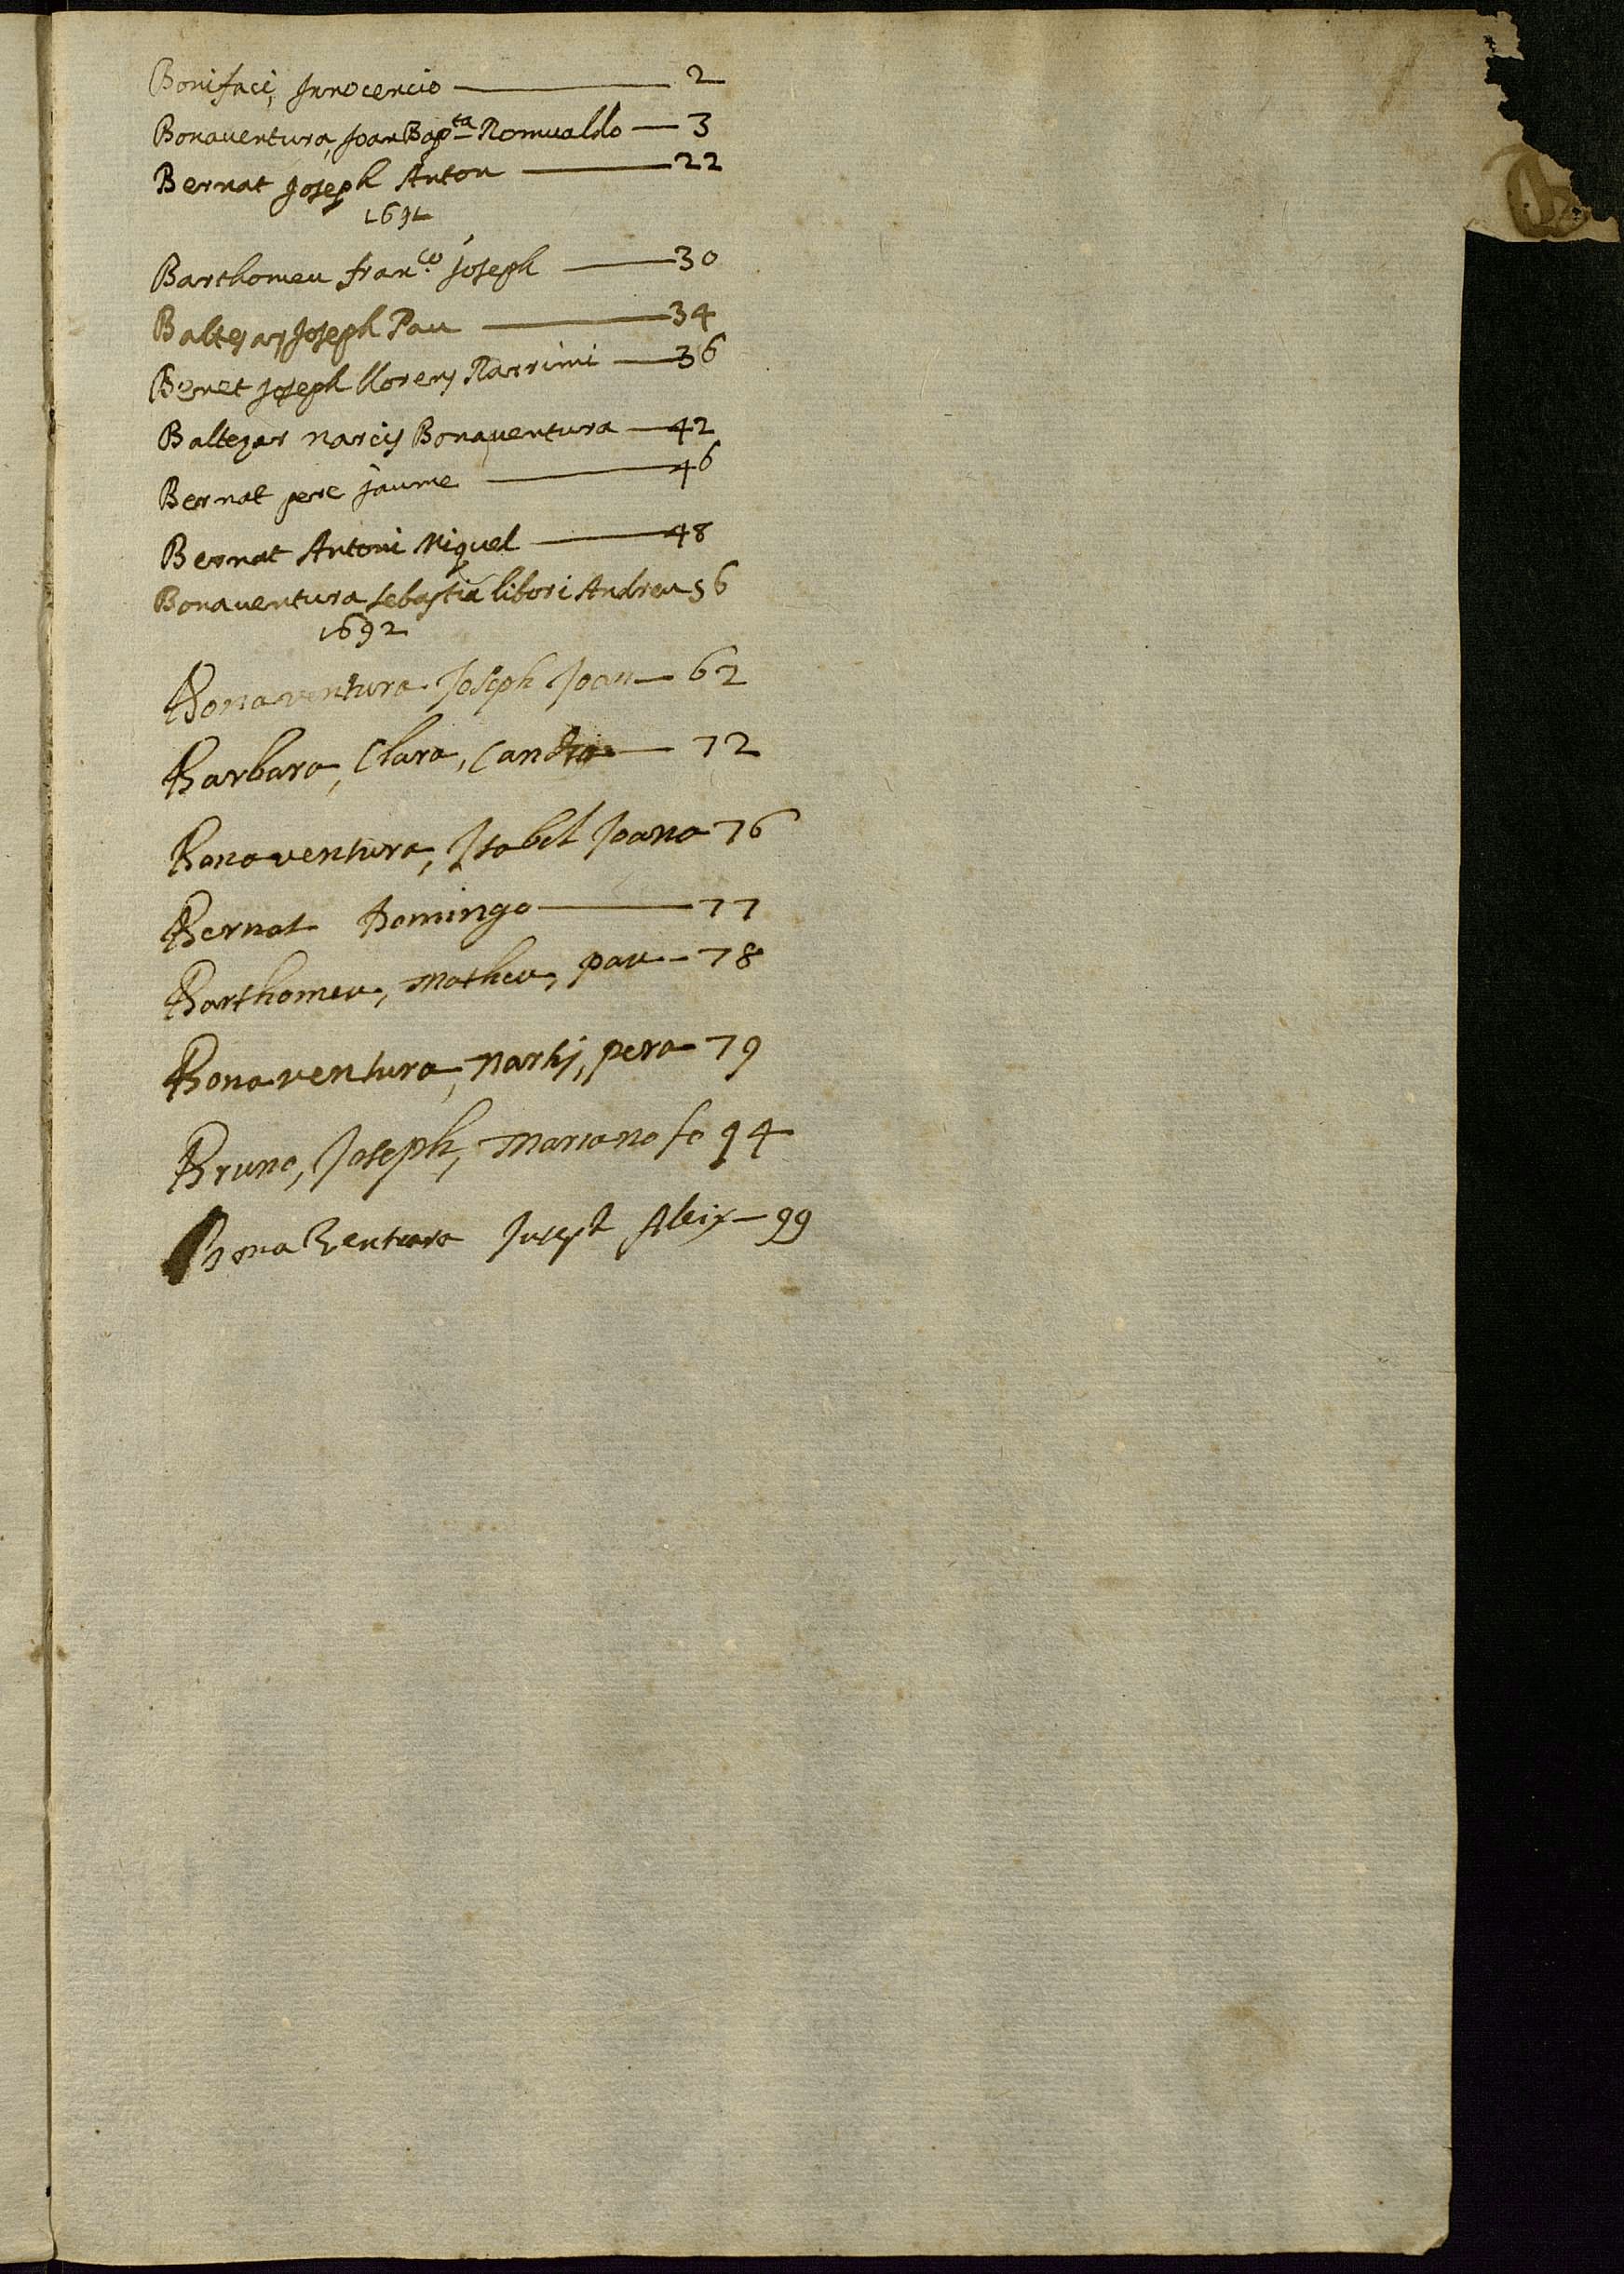 Bonifaci, Innocencio — 2
Bonaventura, Joan Bap.ta Romualdo — 3
Bernat Joseph Anton — 22
1691
Barthomeu fran.co Joseph — 30
Baltesar Joseph Pau — 34
Benet Joseph llorens Narrimi — 36
Baltezar narcis Bonaventura — 42
Bernat pere jaume — 46
Bernat Antoni Miquel — 48
Bonaventura sebastiá libori Andreu 56
1692
Bonaventura Joseph Joan — 62
Barbara, Clara, — 72
Bonaventura, Isabel Joana 76
Bernat Domingo — 77
Barthomeu, Matheu, pau — 78
Bonaventura, Narsis, pera 79
Bruno, Joseph, Mariano fo 94
Bona Ventura Juseph Aleix — 99
B